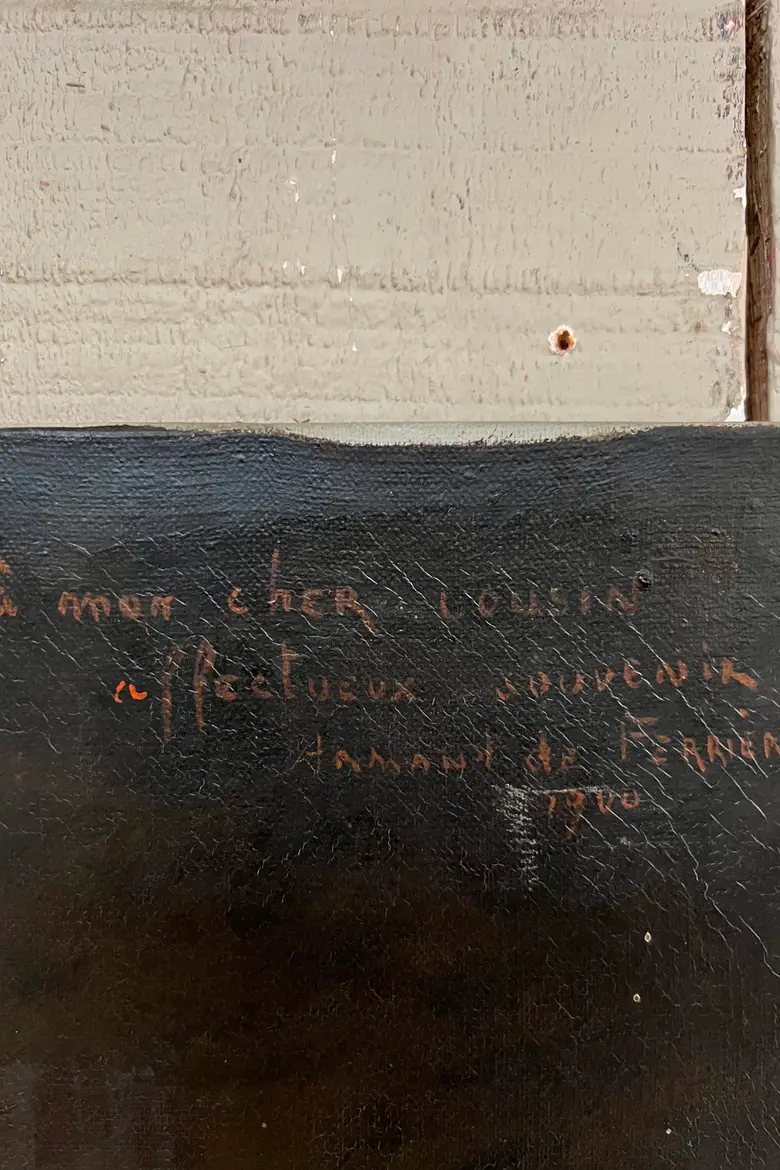 à mon cher cousin
affectueux souvenir
Armand de Ferrièr
1900